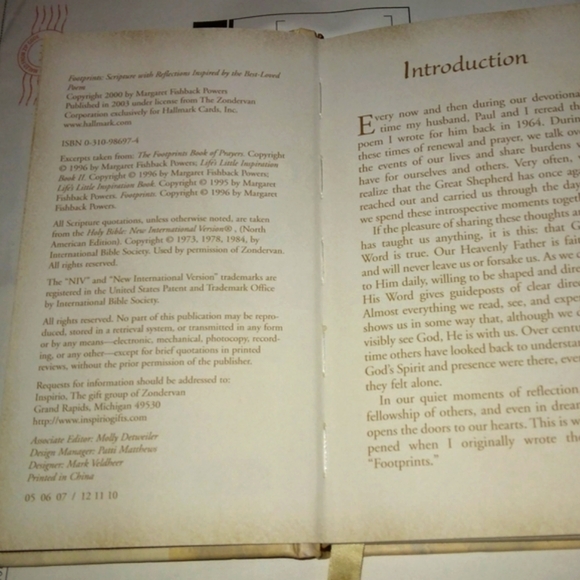 Footprints: Scripture with Reflections Inspired by the Best-Loved
Poem
Copyright 2000 by Margaret Fishback Powers
Published in 2003 under license from The Zondervan
Corporation exclusively for Hallmark Cards, Inc.
www.hallmark.com
ISBN 0-310-98697-4
Excerpts taken from: The Footprints Book of Prayers. Copyright
© 1996 by Margaret Fishback Powers; Life's Little Inspiration
Book II. Copyright © 1996 by Margaret Fishback Powers;
Life's Little Inspiration Book. Copyright © 1995 by Margaret
Fishback Powers. Footprints: Copyright © 1996 by Margaret
Fishback Powers.
All Scripture quotations, unless otherwise noted, are taken
from the Holy Bible: New International Version®, (North
American Edition). Copyright © 1973, 1978, 1984, by
International Bible Society. Used by permission of Zondervan.
All rights reserved.
The "NIV" and "New International Version" trademarks are
registered in the United States Patent and Trademark Office
by International Bible Society.
All rights reserved. No part of this publication may be repro-
duced, stored in a retrieval system, or transmitted in any form
or by any means—electronic, mechanical, photocopy, record-
ing, or any other—except for brief quotations in printed
reviews, without the prior permission of the publisher.
Requests for information should be addressed to:
Inspirio, The gift group of Zondervan
Grand Rapids, Michigan 49530
http://www.inspiriogifts.com
Associate Editor: Molly Detweiler
Design Manager: Patti Matthews
Designer: Mark Veldheer
Printed in China
05 06 07 / 12 11 10
Introduction
Every now and then during our devotiona
time my husband, Paul and I reread th
poem I wrote for him back in 1964. Durin
these times of renewal and prayer, we talk ov
the events of our lives and share burdens
have for ourselves and others. Very often,
realize that the Great Shepherd has once aga
reached out and carried us through the day
we spend these introspective moments togeth
If the pleasure of sharing these thoughts a
has taught us anything, it is this: that G
Word is true. Our Heavenly Father is fait
and will never leave us or forsake us. As we c
to Him daily, willing to be shaped and direc
His Word gives guideposts of clear direc
Almost everything we read, see, and expe
shows us in some way that, although we c
visibly see God, He is with us. Over centu
time others have looked back to understan
God's Spirit and presence were there, eve
they felt alone.
In our quiet moments of reflection
fellowship of others, and even in dream
opens the doors to our hearts. This is w
pened when I originally wrote the
"Footprints."